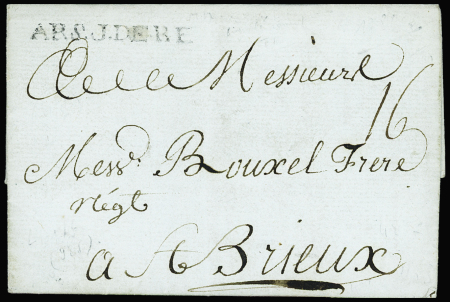 AR&J.DE RE
A Messieurs
16
Mess.rs Rouxel Frere
Négt
a St Brieux